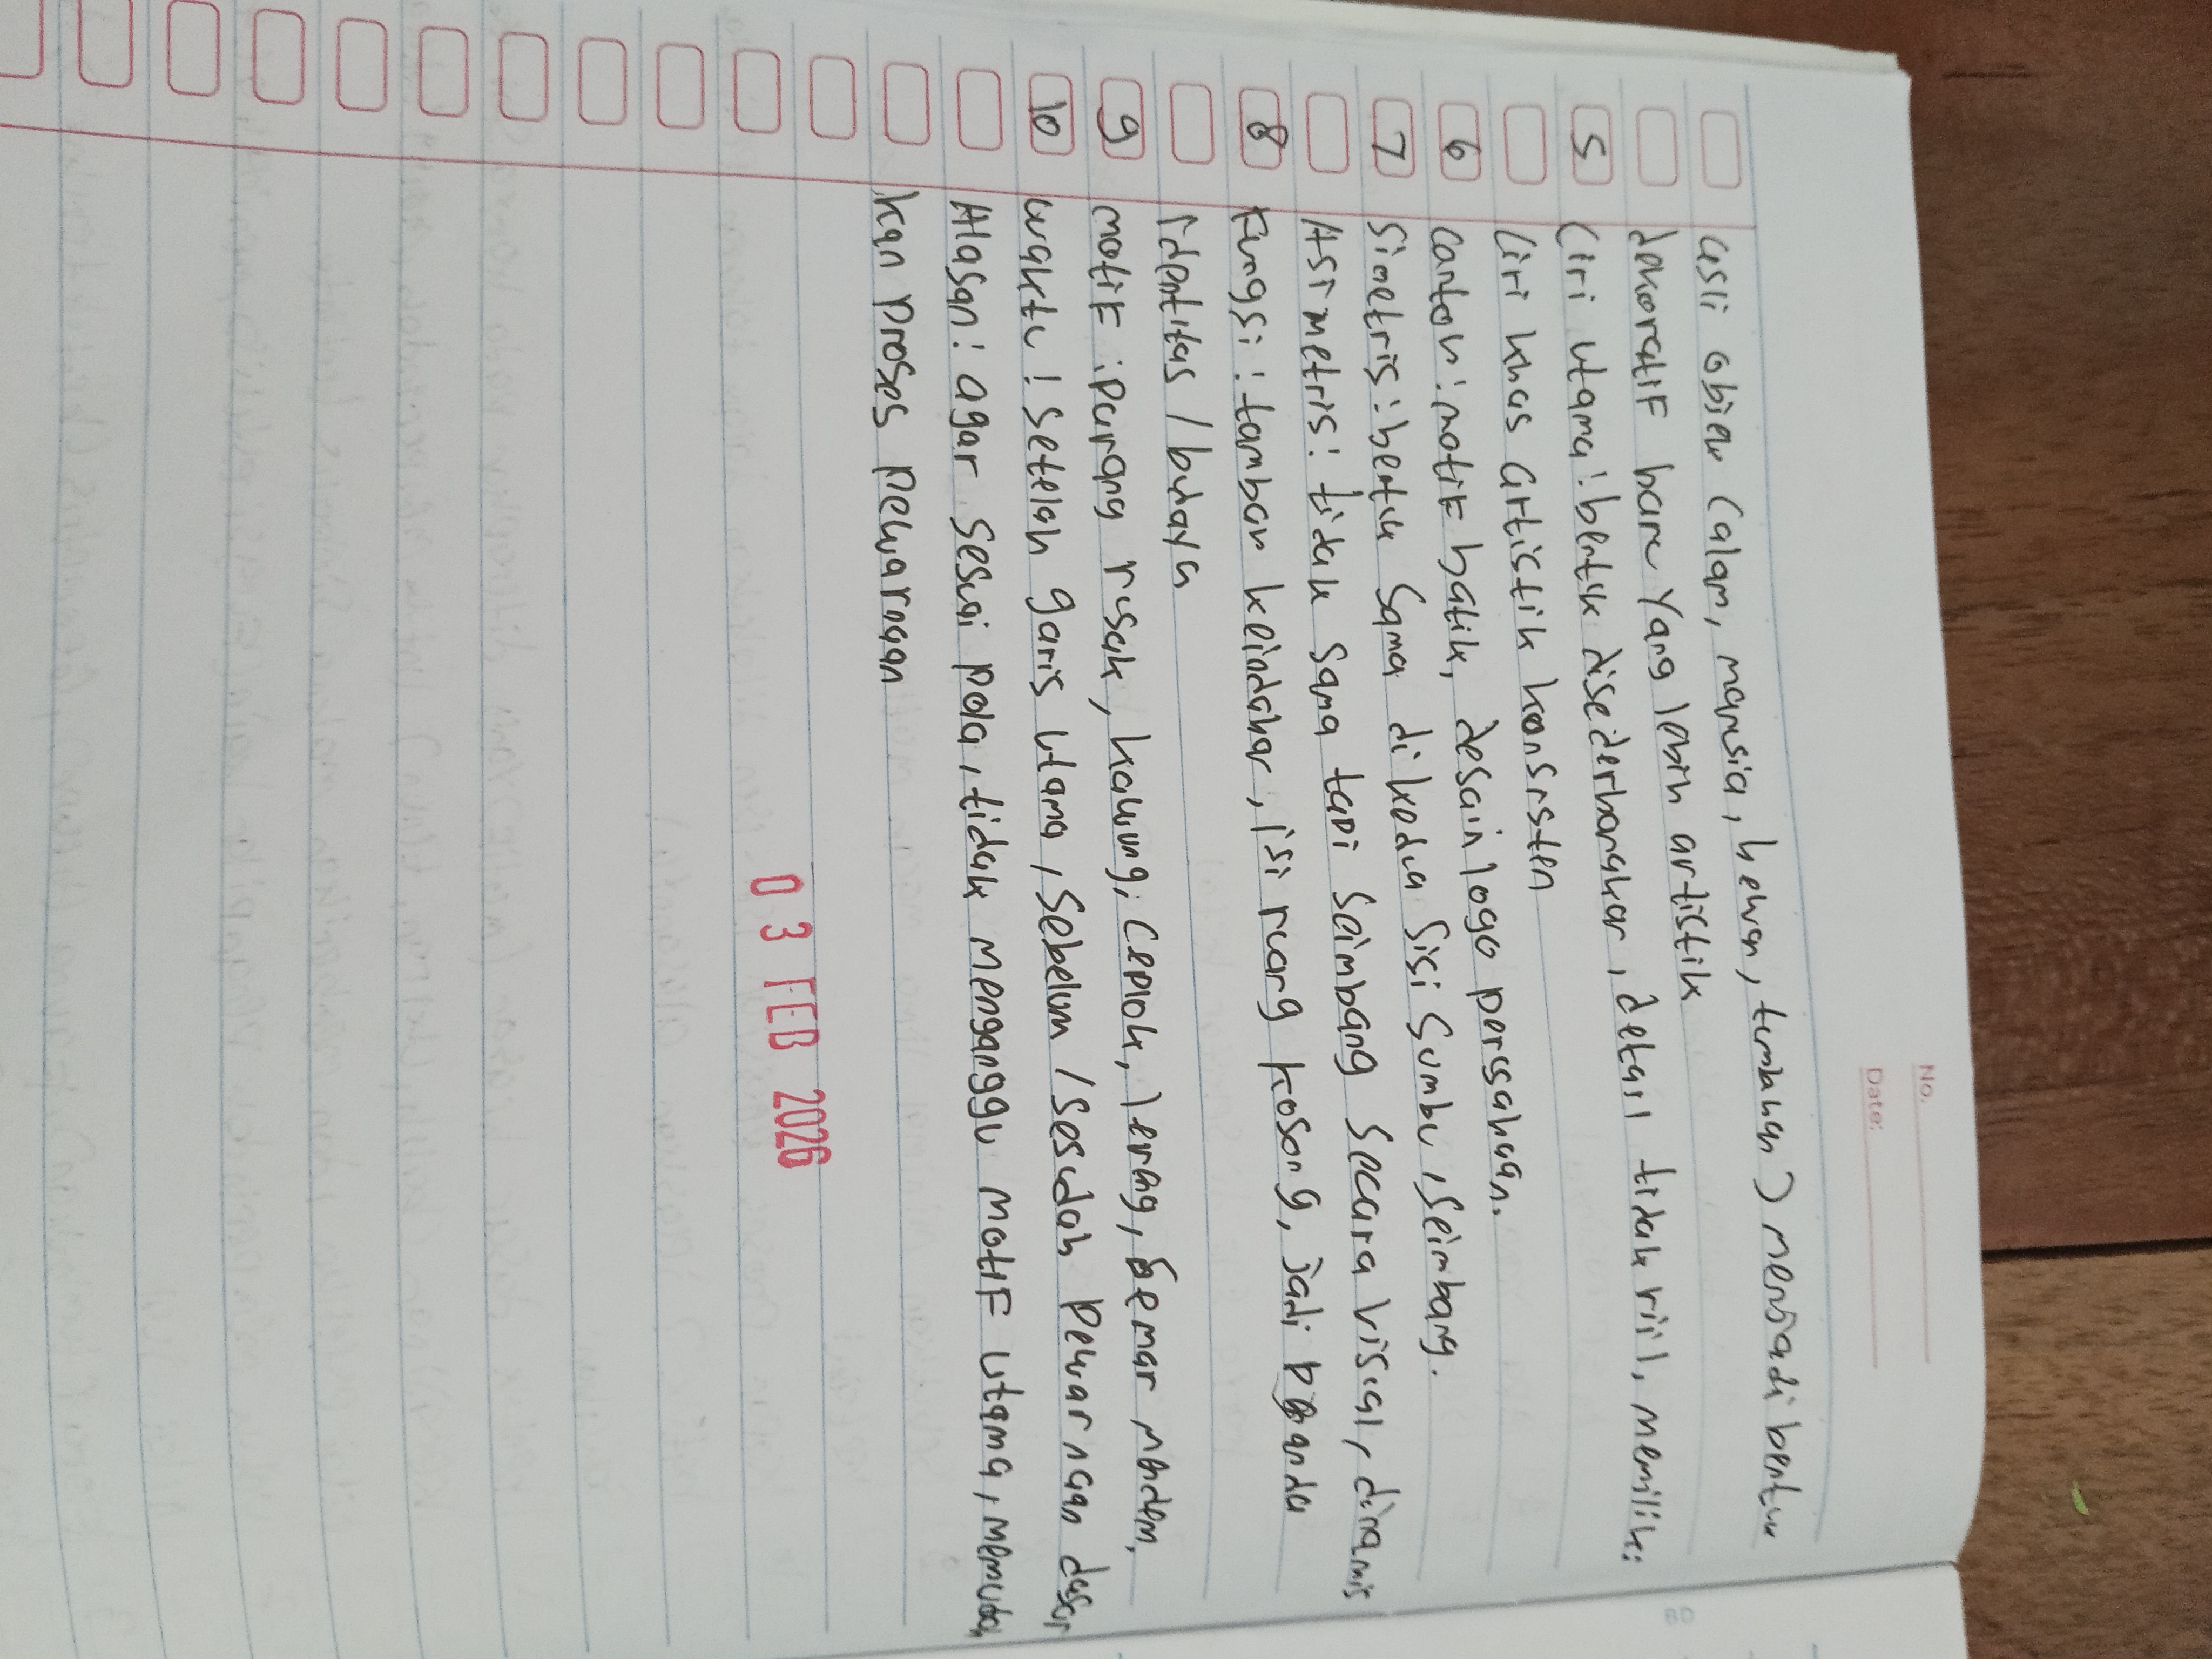 No.
Date:
asli objek (alam, manusia, hewan, tumbuhan) menjadi bentuk
dekoratif baru yang lebih artistik
5 Ciri utama: bentuk disederhanakan, detail tidak riil, memiliki
Ciri khas artistik konsisten
6 Contoh: motif batik, desain logo perusahaan.
7 Simetris: bentuk sama di kedua sisi sumbu, seimbang.
Asimetris: tidak sama tapi seimbang secara visual, dinamis
8 Fungsi: tambah keindahan, isi ruang kosong, jadi penanda
identitas / budaya
9 Motif: parang rusak, kawung, ceplok, lereng, semar mendem,
10 Waktu: setelah garis utama, sebelum / sesudah pewarnaan dasar
Alasan: agar sesuai pola, tidak mengganggu motif utama, memudah
kan proses pewarnaan
03 FEB 2026